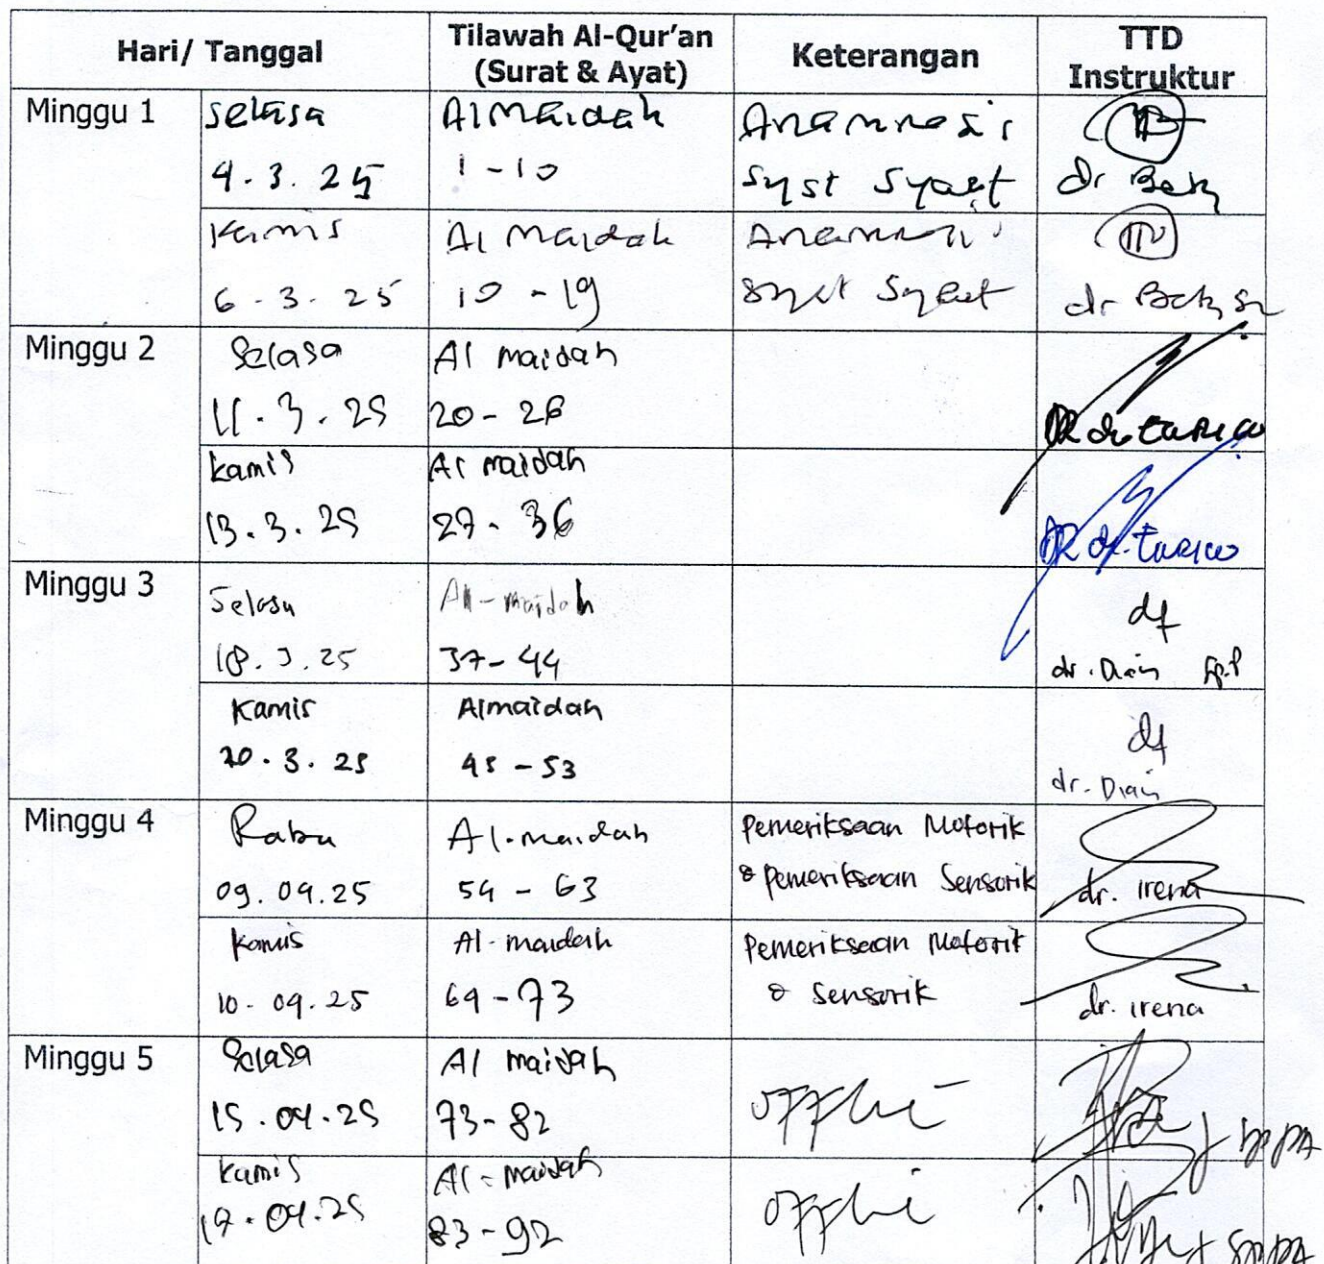 Hari/ Tanggal
Tilawah Al-Qur'an
(Surat & Ayat)
Keterangan
TTD
Instruktur
Minggu 1
Selasa
4.3.25
Al Maidah
1-10
Anamnesis
Syst Syaraf
dr
Kamis
6-3-25
Al Maidah
10-19
Syst Syaraf
dr
Minggu 2
Selasa
11.3.25
Al maidah
20-26
DR dr
Kamis
13.3.25
Al maidah
27-36
DR dr.
Minggu 3
Selasa
18.3.25
Al-maidah
37-44
dr. Dian Sp.P
Kamis
20.3.25
Almaidah
45-53
dr. Dian
Minggu 4
Rabu
09.04.25
Al-maidah
54-63
Pemeriksaan Motorik
& pemeriksaan Sensorik
dr. irena
Kamis
10-04.25
Al-maidah
64-73
Pemeriksaan Motorik
& Sensorik
dr. irena
Minggu 5
Selasa
15.04.25
Al maidah
73-82
offline
SpPA
Kamis
17.04.25
Al-maidah
83-92
offline
SpPA